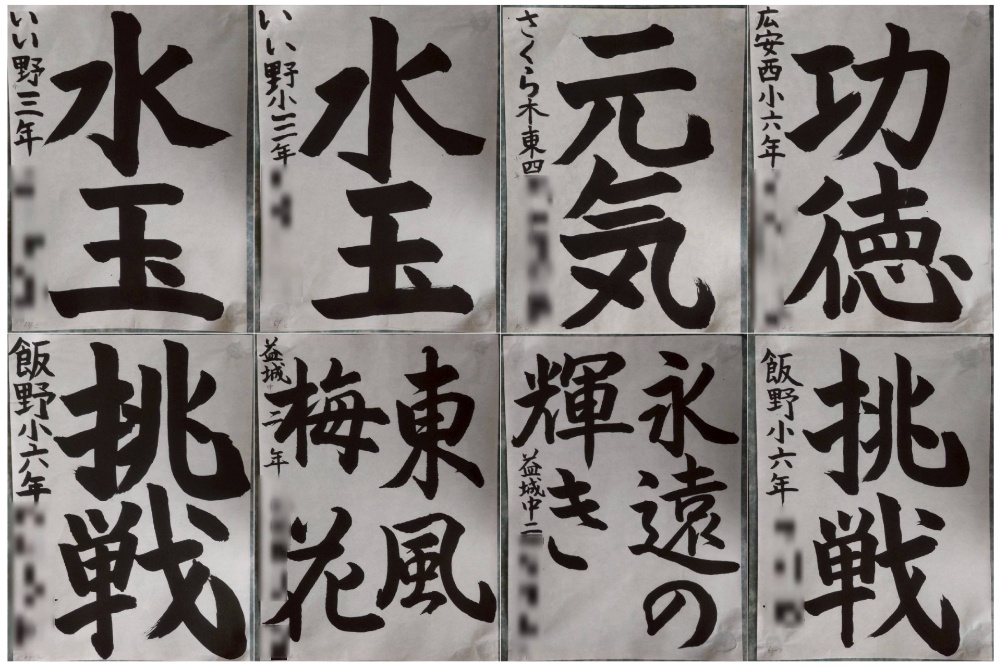 水玉
いい野三年
水玉
いい野小三年
元気
さくら木東四
功徳
広安西小六年
挑戦
飯野小六年
東風
梅花
益城中二年
永遠の
輝き
益城中二
挑戦
飯野小六年